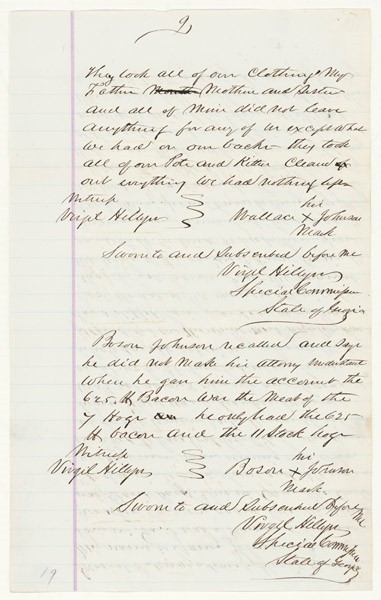 9
They took all of our Clothing My
Father Mother and Sister
and all of Mine did not leave
anything for any of us except what
we had on our backs they took
all of our Pots and Kittles Cleaned
out everything We had nothing left
Witness
his
Virgil Hillyer Wallace X Johnson
Mark
Sworn to and Subscribed before me
Virgil Hillyer
Special Commissioner
State of Georgia
Boson Johnson recalled and says
he did not Make his Attorney understand
When he gave him the account the
625 lb Bacon Was the Meat of the
7 Hogs he only had the 625
lb bacon and the 11 Stock hogs
Witness
his
Virgil Hillyer Boson X Johnson
Mark
Sworn to and Subscribed Before me
Virgil Hillyer
Special Commissioner
State of Georgia
19